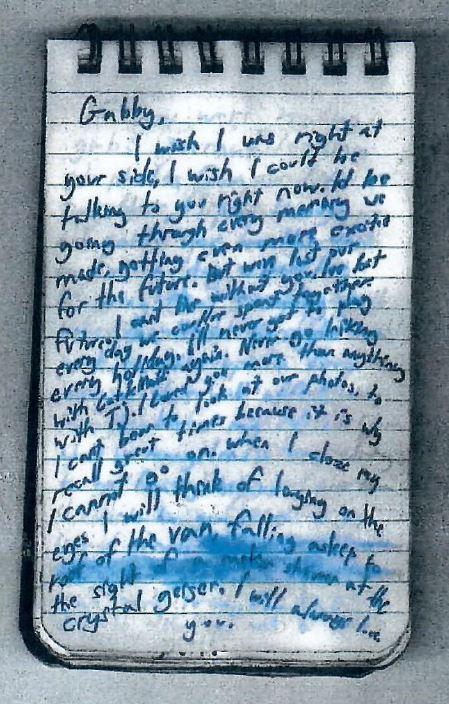 Gabby,
I wish I was right at
your side, I wish I could be
talking to you right now. Id be
going through every memory we
made, getting even more excited
for the future. But we've lost our
future. I can't live without you. I've lost
every day we could've spent together
every holiday. I'll never get to play
with again. Never go hiking
with TJ. I loved you more than anything
I can't bear to look at our photos, to
recall great times because it is why
I cannot go on. When I close my
eyes I will think of laughing on the
roof of the van, falling asleep to
the sight of a meteor shower at the
crystal geyser. I will always love
you.